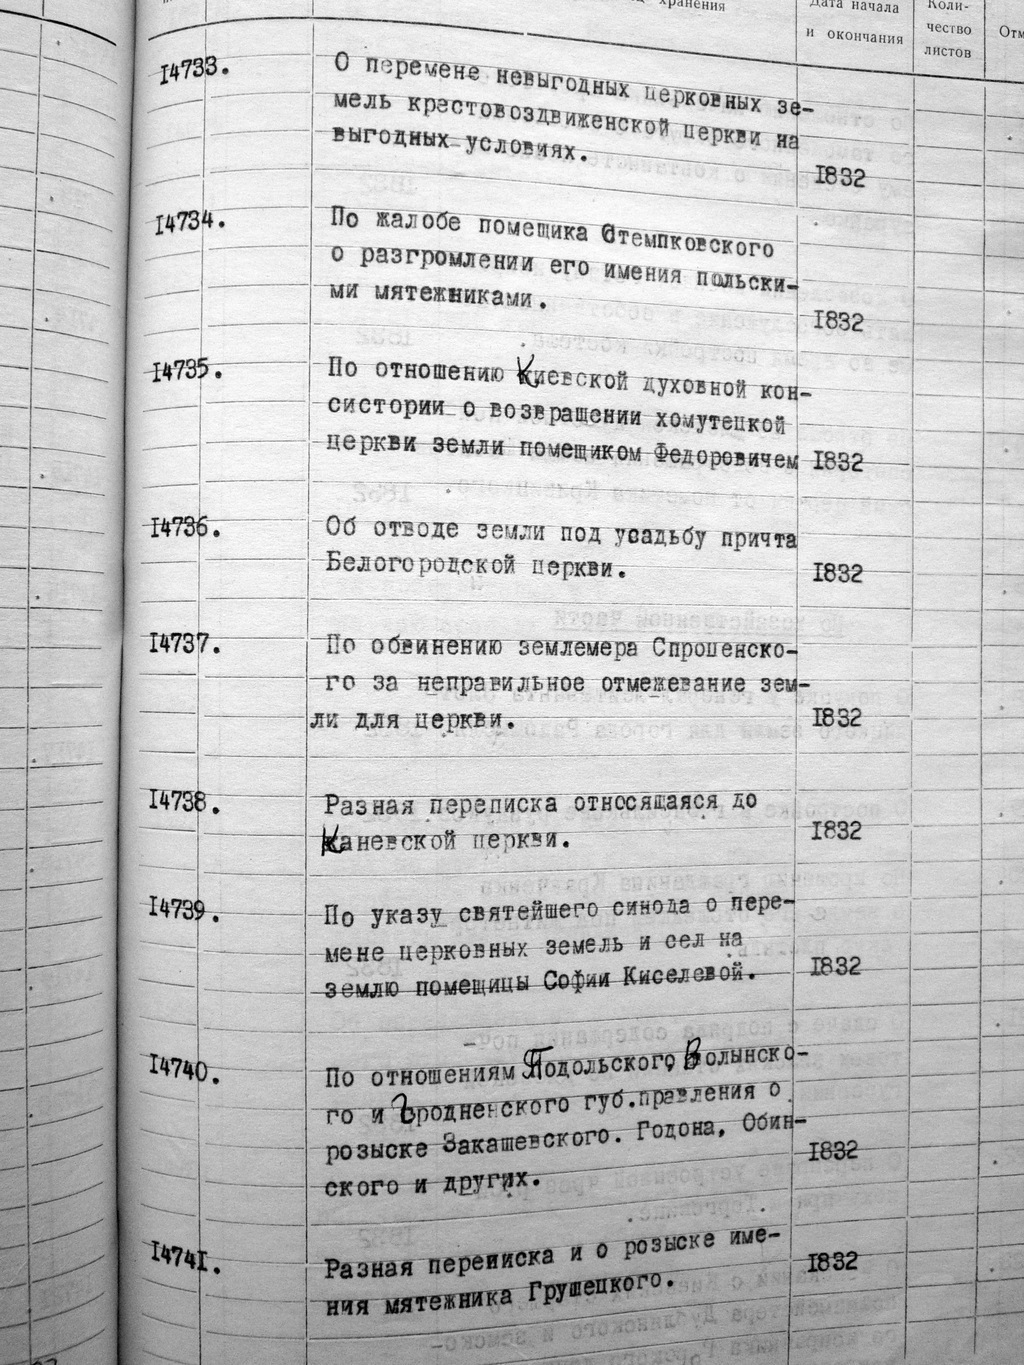 хранения
Дата начала
и окончания
Коли-
чество
листов
14733.
О перемене невыгодных церковных зе-
мель крестовоздвиженской церкви на
выгодных условиях.
1832
14734.
По жалобе помещика Стемпковского
о разгромлении его имения польски-
ми мятежниками.
1832
14735.
По отношению Киевской духовной кон-
систории о возвращении хомутецкой
церкви земли помещиком Федоровичем 1832
14736.
Об отводе земли под усадьбу причта
Белогородской церкви.
1832
14737.
По обвинению землемера Спроценско-
го за неправильное отмежевание зем-
ли для церкви.
1832
14738.
Разная переписка относящаяся до
Каневской церкви.
1832
14739.
По указу святейшего синода о пере-
мене церковных земель и сел на
землю помещицы Софии Киселевой.
1832
14740.
По отношениям Подольского, Волынско-
го и Гродненского губ.правления о
розыске Закашевского. Годона, Обин-
ского и других.
1832
14741.
Разная переписка и о розыске име-
ния мятежника Грушецкого.
1832